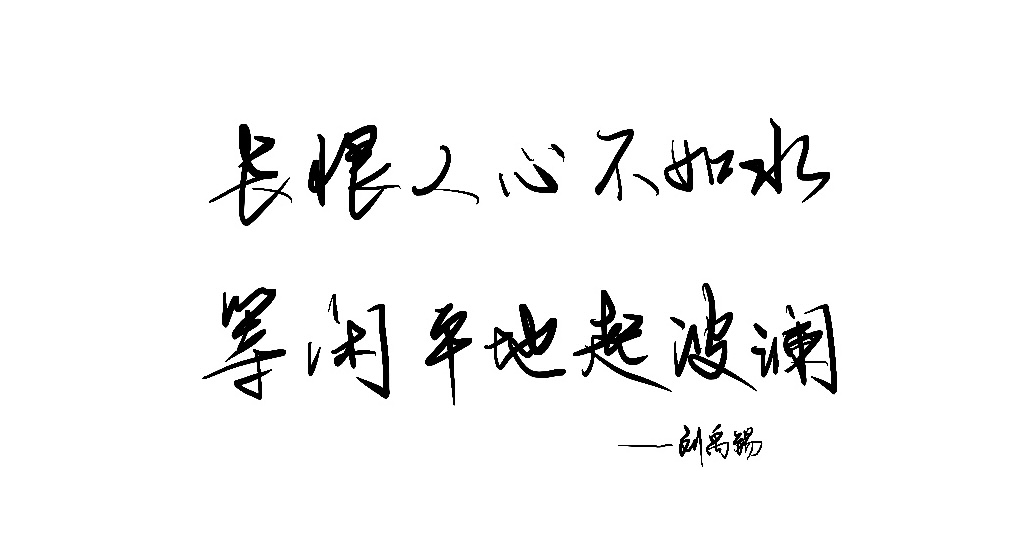 长恨人心不如水
等闲平地起波澜
——刘禹锡